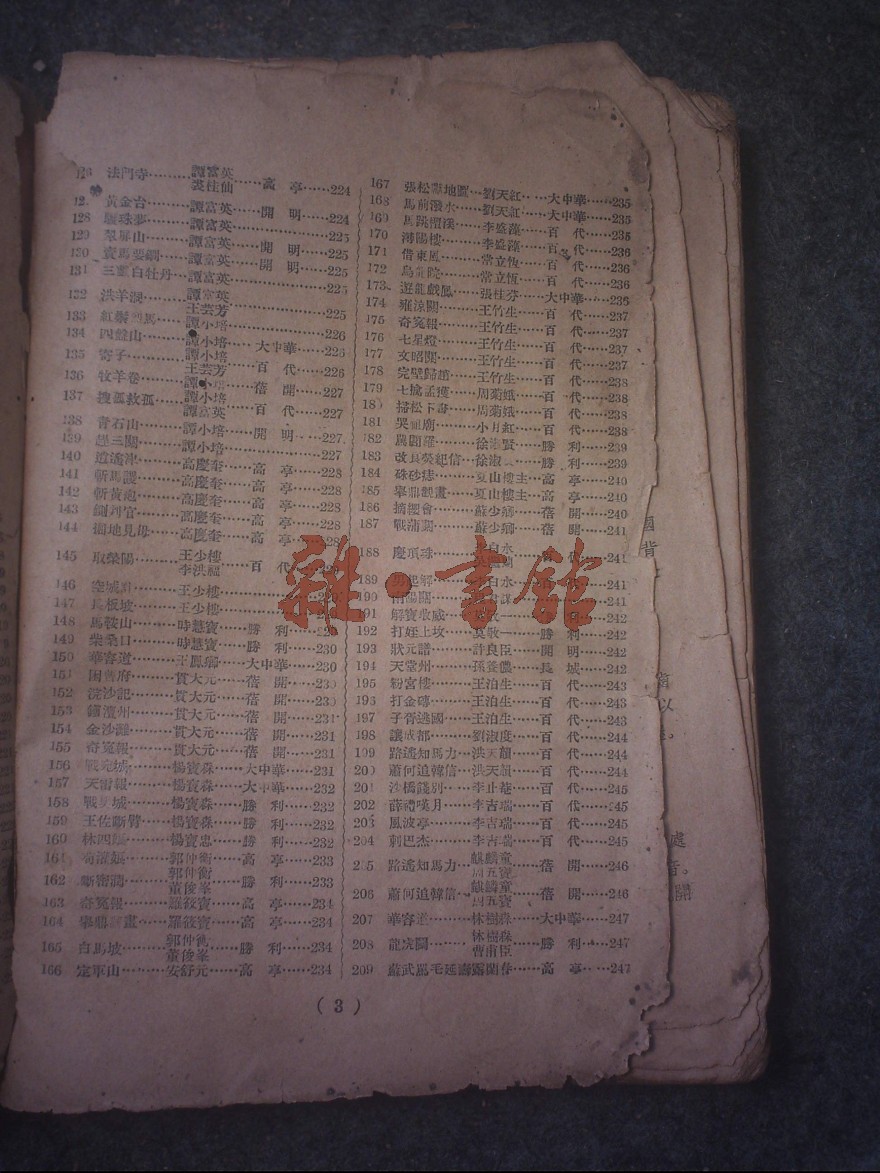 法門寺………譚富英
裘桂仙……高　亭……224
黃金台……譚富英……開　明……224
128　珠夢……譚富英……225
129　翠屏山……譚富英……開　明……225
130　賣馬耍鐧……譚富英……開　明……225
131　三戲白牡丹……譚富英……225
132　洪羊洞……譚富英
王芸芳……225
133　紅鬃烈馬……譚小培……226
134　四盤山……譚小培……大中華……226
135　寄子……譚小培
王芸芳……百　代……226
136　牧羊卷……譚小培……蓓　開……227
137　搜孤救孤……譚小培
譚富英……百　代……227
138　青石山……譚小培……開　明……227
139　三關……譚小培……227
140　逍遙津……高慶奎……高　亭……228
141　斬馬謖……高慶奎……高　亭……228
142　斬黃袍……高慶奎……高　亭……228
143　鍘判官……高慶奎……高　亭……228
144　掘地見母……高慶奎……高　亭……228
145　取滎陽……王少樓
李洪福……百　代
146　空城計……王少樓
147　長板坡……王少樓
148　馬鞍山……時慧寶……勝　利
149　柴桑口……時慧寶……勝　利……230
150　華容道……王鳳卿……大中華……230
151　困曹府……貫大元……蓓　開……230
152　浣沙記……貫大元……蓓　開……230
153　澧州……貫大元……蓓　開……231
154　金沙灘……貫大元……蓓　開……231
155　奇冤報……貫大元……蓓　開……231
156　戰宛城……楊寶森……大中華……231
157　天雷報……楊寶森……大中華……232
158　戰　城……楊寶森……勝　利……232
159　王佐斷臂……楊寶森……勝　利……232
160　林四娘……楊寶忠……勝　利……232
161　郭仲衡……高　亭……233
162　斷密澗……郭仲衡
董俊峯……勝　利……233
163　奇冤報……羅筱寶……高　亭……234
164　舉鼎觀畫……羅筱寶……高　亭……234
165　白馬坡……郭仲衡
董俊峯……勝　利……234
166　定軍山……安舒元……高　亭……234
167　張松獻地圖……劉天紅……大中華……235
168　馬前潑水……劉天紅……大中華……235
169　馬跳檀溪……李盛藻……百　代……235
170　潯陽樓……李盛藻……百　代……236
171　借東風……常立恆……百　代……236
172　烏龍院……常立恆……百　代……236
173　遊龍戲鳳……張桂芬……大中華……236
174　雍涼關……王竹生……百　代……237
175　奇冤報……王竹生……百　代……237
176　七星燈……王竹生……百　代……237
177　文昭關……王竹生……百　代……237
178　完璧歸趙……王竹生……百　代……238
179　七擒孟獲……周菊娥……百　代……238
180　掃松下書……周菊娥……百　代……238
181　哭祖廟……小月紅……百　代……238
182　罵閻羅……徐淑賢……勝　利……239
183　改良榮紀信……徐淑賢……勝　利……239
184　硃砂痣……夏山樓主……高　亭……240
185　舉鼎觀畫……夏山樓主……高　亭……240
186　摘纓會……蘇少卿……蓓　開……240
187　戰蒲關……蘇少卿……蓓　開……241
188　慶頂珠……白水……百　代……241
189　男起解……白水……百　代……241
190　南陽關……百　代……241
191　解寶收威……百　代……242
192　打姪上坟……莫敬一……勝　利……242
193　狀元譜……許良臣……開　明……242
194　天堂州……孫養儂……長　城……242
195　粉宮樓……王泊生……百　代……243
196　打金磚……王泊生……百　代……243
197　子胥逃國……王泊生……百　代……243
198　讓成都……劉淑度……百　代……244
199　路遙知馬力……洪天韻……百　代……244
200　蕭何追韓信……洪天韻……百　代……244
201　沙橋餞別……李止菴……百　代……245
202　薛禮嘆月……李吉瑞……百　代……245
203　風波亭……李吉瑞……百　代……245
204　刺巴杰……李吉瑞……百　代……245
205　路遙知馬力……麒麟童
周五寶……蓓　開……246
206　蕭何追韓信……麒麟童
周五寶……蓓　開……246
207　華容道……林樹森……大中華……247
208　龍虎關……林樹森
曹甫臣……勝　利……247
209　蘇武罵毛延壽露蘭春……高　亭……247
( 3 )
雜・書館